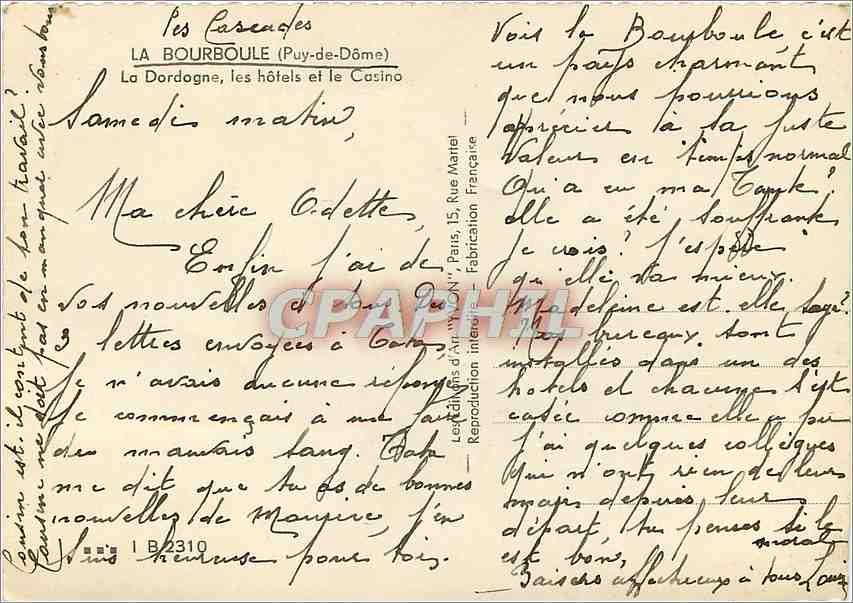 Les Cascades
LA BOURBOULE (Puy-de-Dôme)
La Dordogne, les hôtels et le Casino
Samedi matin,
Ma chère Odette,
Enfin j'ai de
vos nouvelles et tous
lettres envoyées à Tata,
Je n'avais aucune réponse
Je commençais à me faire
du mauvais sang. Tata
me dit que tu as de bonnes
nouvelles de Maurice, j'en
suis heureuse pour toi.
1 B 2310
Cousin est-il content de son travail?
Cousine ne doit pas en manquer avec vous tous
Les Editions d'Art "YVON", Paris, 15, Rue Martel
Reproduction interdite — Fabrication Française
Vois la Bourboule c'est
un pays charmant
que nous pourrions
apprécier à sa juste
valeur en temps normal
Qu'a eu ma Tante?
elle a été souffrante
je crois? J'espère
qu'elle va mieux.
Madeleine est-elle sage?
Nos bureaux sont
installés dans un des
hotels et chacune s'est
casée comme elle a pu
j'ai quelques collègues
qui n'ont rien de leurs
maris depuis leur
départ, tu penses si le
moral
est bon,
Baisers affectueux à tous
CPAPHIL